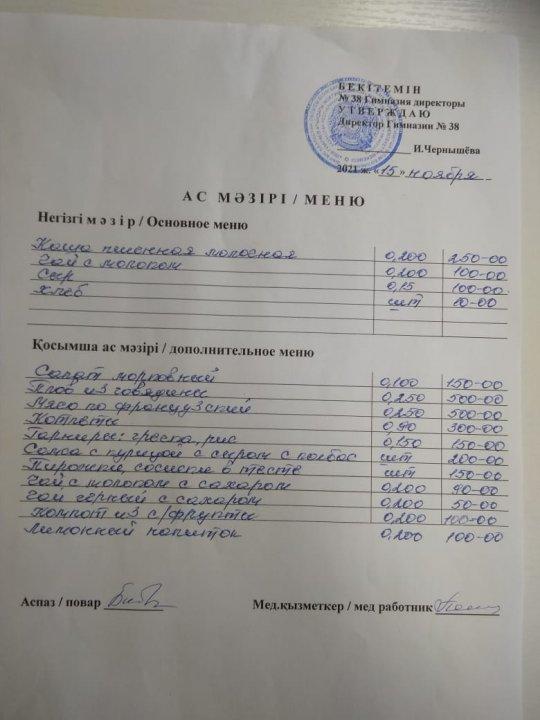 БЕКІТЕМІН
№ 38 Гимназия директоры
УТВЕРЖДАЮ
Директор Гимназии № 38
И.Чернышёва
2021 ж. «15» ноября
АС МӘЗІРІ / МЕНЮ
Негізгі мәзір / Основное меню
Каша пшенная молочная 0,200 250-00
Чай с молоком 0,200 100-00
Сыр 0,15 100-00
Хлеб шт 10-00
Қосымша ас мәзірі / дополнительное меню
Салат морковный 0,100 150-00
Плов из говядины 0,250 500-00
Мясо по французский 0,250 500-00
Котлеты 0,90 300-00
Гарниры: гречка, рис 0,150 150-00
Самса с курицой с сыром с колбас шт 200-00
Пирожки, сосиски в тесте шт 150-00
Чай с молоком с сахаром 0,200 90-00
Чай чёрный с сахаром 0,200 50-00
Компот из с/фрукты 0,200 100-00
Лимонный напиток 0,200 100-00
Аспаз / повар Мед.қызметкер / мед работник